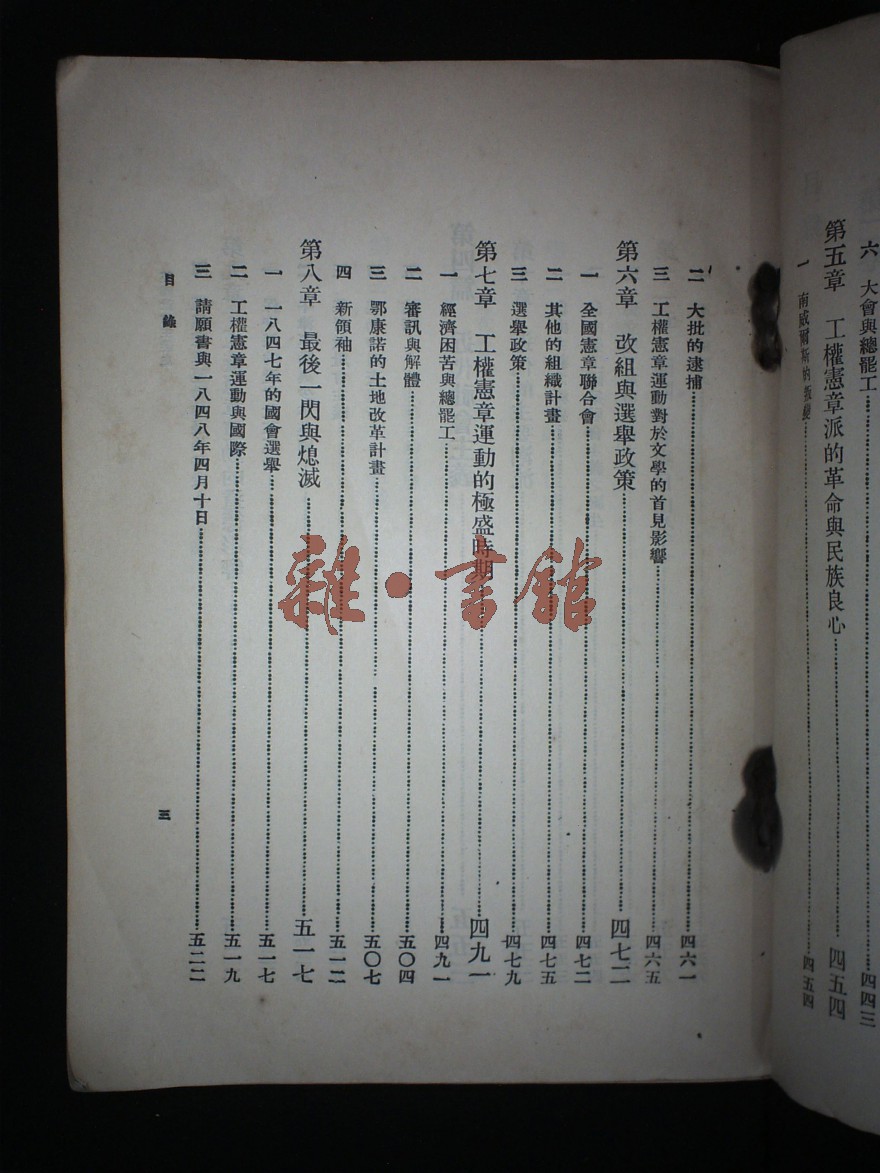 六　大會與總罷工……四四三
第五章　工權憲章派的革命與民族良心……四五四
一　南威爾斯的叛變……四五四
二　大批的逮捕……四六一
三　工權憲章運動對於文學的首見影響……四六五
第六章　改組與選舉政策……四七二
一　全國憲章聯合會……四七二
二　其他的組織計畫……四七五
三　選舉政策……四七九
第七章　工權憲章運動的極盛時期……四九一
一　經濟困苦與總罷工……四九一
二　審訊與解體……五〇四
三　鄂康諾的土地改革計畫……五〇七
四　新領袖……五一二
第八章　最後一閃與熄滅……五一七
一　一八四七年的國會選舉……五一七
二　工權憲章運動與國際……五一九
三　請願書與一八四八年四月十日……五二二
目錄
三
雜·書館